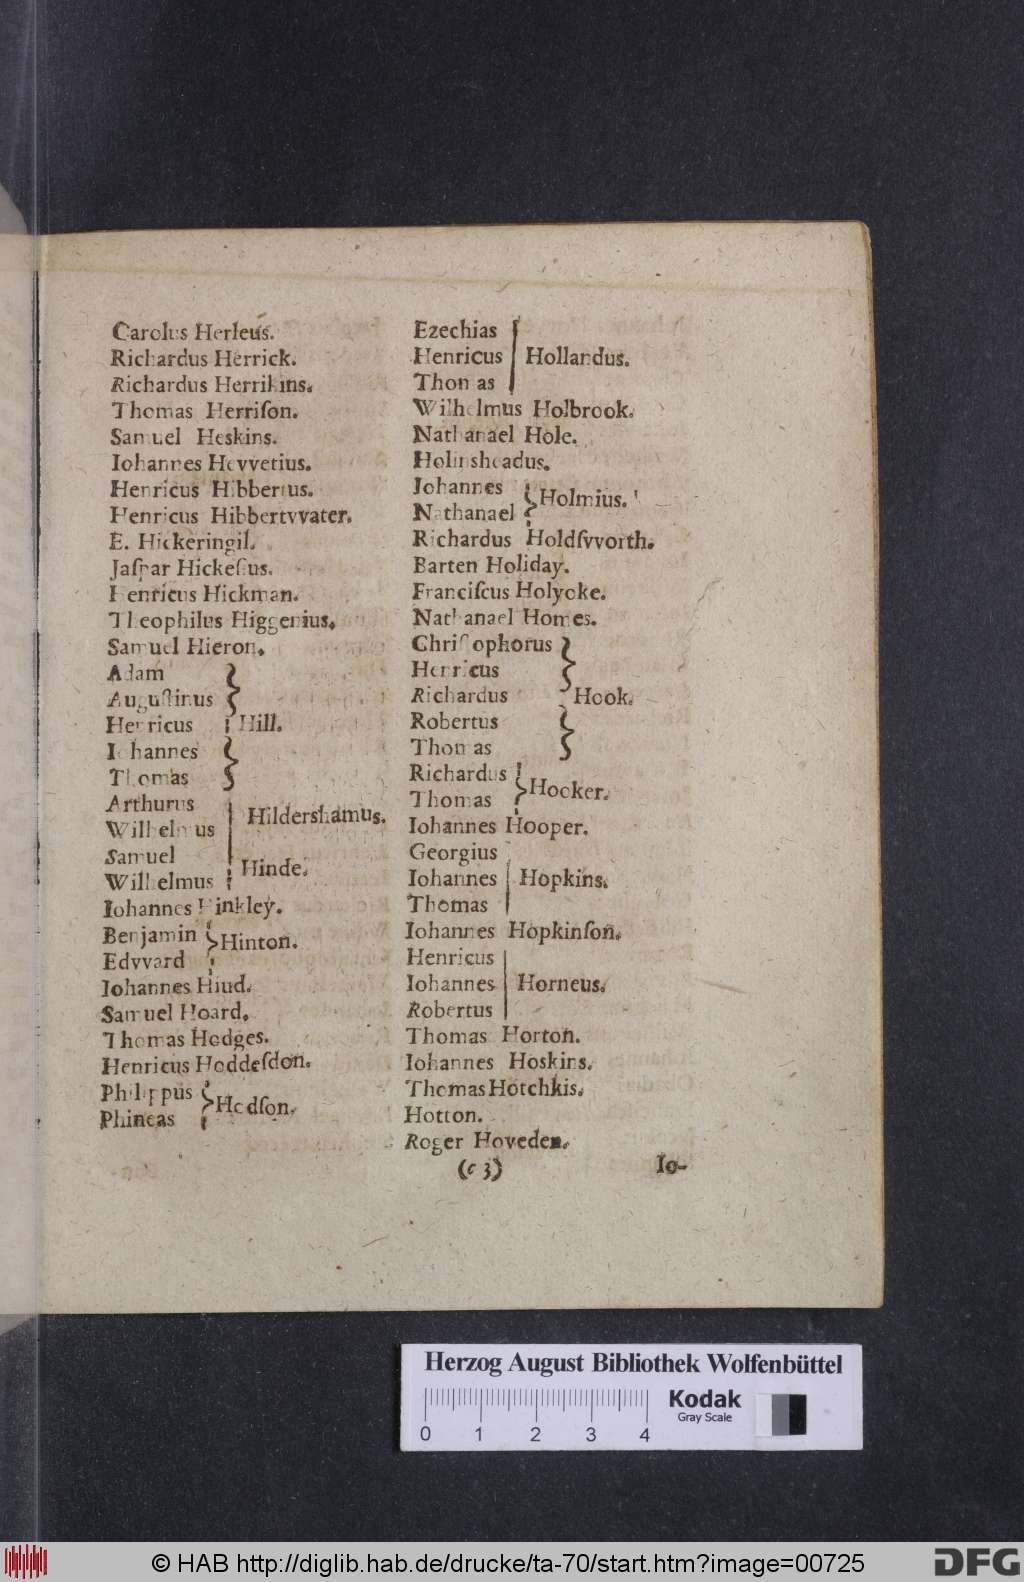 Carolus Herleus.
Richardus Herrick.
Richardus Herrikins.
Thomas Herriſon.
Samuel Heskins.
Iohannes Hevvetius.
Henricus Hibbertus.
Henricus Hibbertvvater.
E. Hickeringil.
Jaſpar Hickeſius.
Henricus Hickman.
Theophilus Higgenius.
Samuel Hieron.
Adam
Auguſtinus
Henricus Hill.
Iohannes
Thomas
Arthurus
Wilhelmus Hildershamus.
Samuel
Wilhelmus Hinde.
Iohannes Hinkley.
Benjamin
Edvvard Hinton.
Iohannes Hiud.
Samuel Hoard.
Thomas Hodges.
Henricus Hoddeſdon.
Philippus
Phineas Hodſon.
Ezechias
Henricus Hollandus.
Thomas
Wilhelmus Holbrook.
Nathanael Hole.
Holinsheadus.
Iohannes
Nathanael Holmius.
Richardus Holdſvvorth.
Barten Holiday.
Franciſcus Holyoke.
Nathanael Homes.
Chriſtophorus
Henricus
Richardus Hook.
Robertus
Thomas
Richardus
Thomas Hooker.
Iohannes Hooper.
Georgius
Iohannes Hopkins.
Thomas
Iohannes Hopkinſon.
Henricus
Iohannes Horneus.
Robertus
Thomas Horton.
Iohannes Hoskins.
Thomas Hotchkis.
Hotton.
Roger Hoveden.
(c 3) Io-
Herzog August Bibliothek Wolfenbüttel
Kodak
Gray Scale
0 1 2 3 4
© HAB http://diglib.hab.de/drucke/ta-70/start.htm?image=00725
DFG